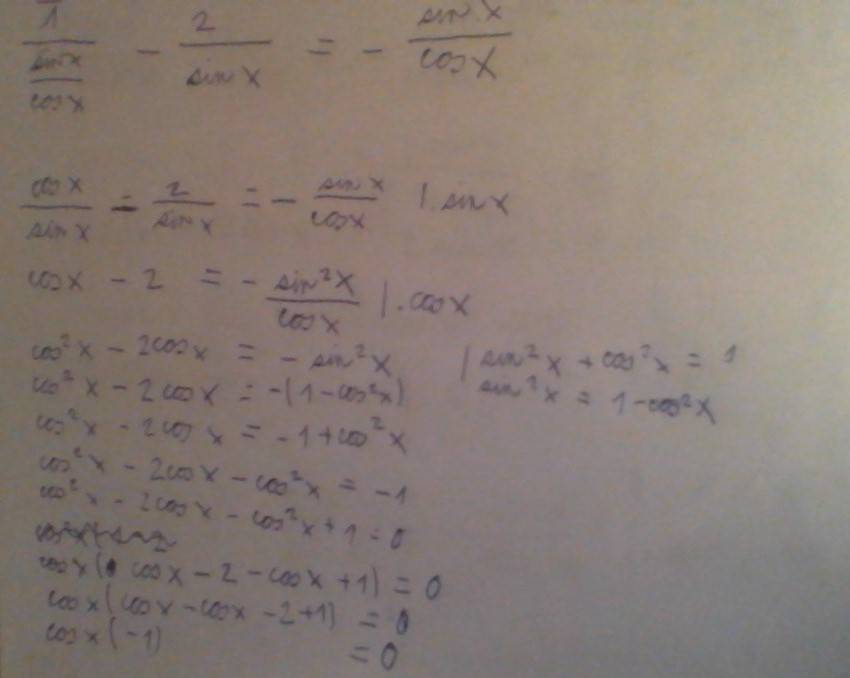 1/((sin x)/(cos x)) - 2/(sin x) = - (sin x)/(cos x)
(cos x)/(sin x) - 2/(sin x) = - (sin x)/(cos x) | . sin x
cos x - 2 = - (sin²x)/(cos x) | . cos x
cos²x - 2cos x = - sin²x | sin²x + cos²x = 1
cos²x - 2cos x = -(1-cos²x) sin²x = 1-cos²x
cos²x - 2cos x = -1+cos²x
cos²x - 2cos x - cos²x = -1
cos²x - 2cos x - cos²x + 1 = 0
cos x (cos x - 2 - cos x + 1) = 0
cos x (cos x - cos x - 2 + 1) = 0
cos x (-1) = 0